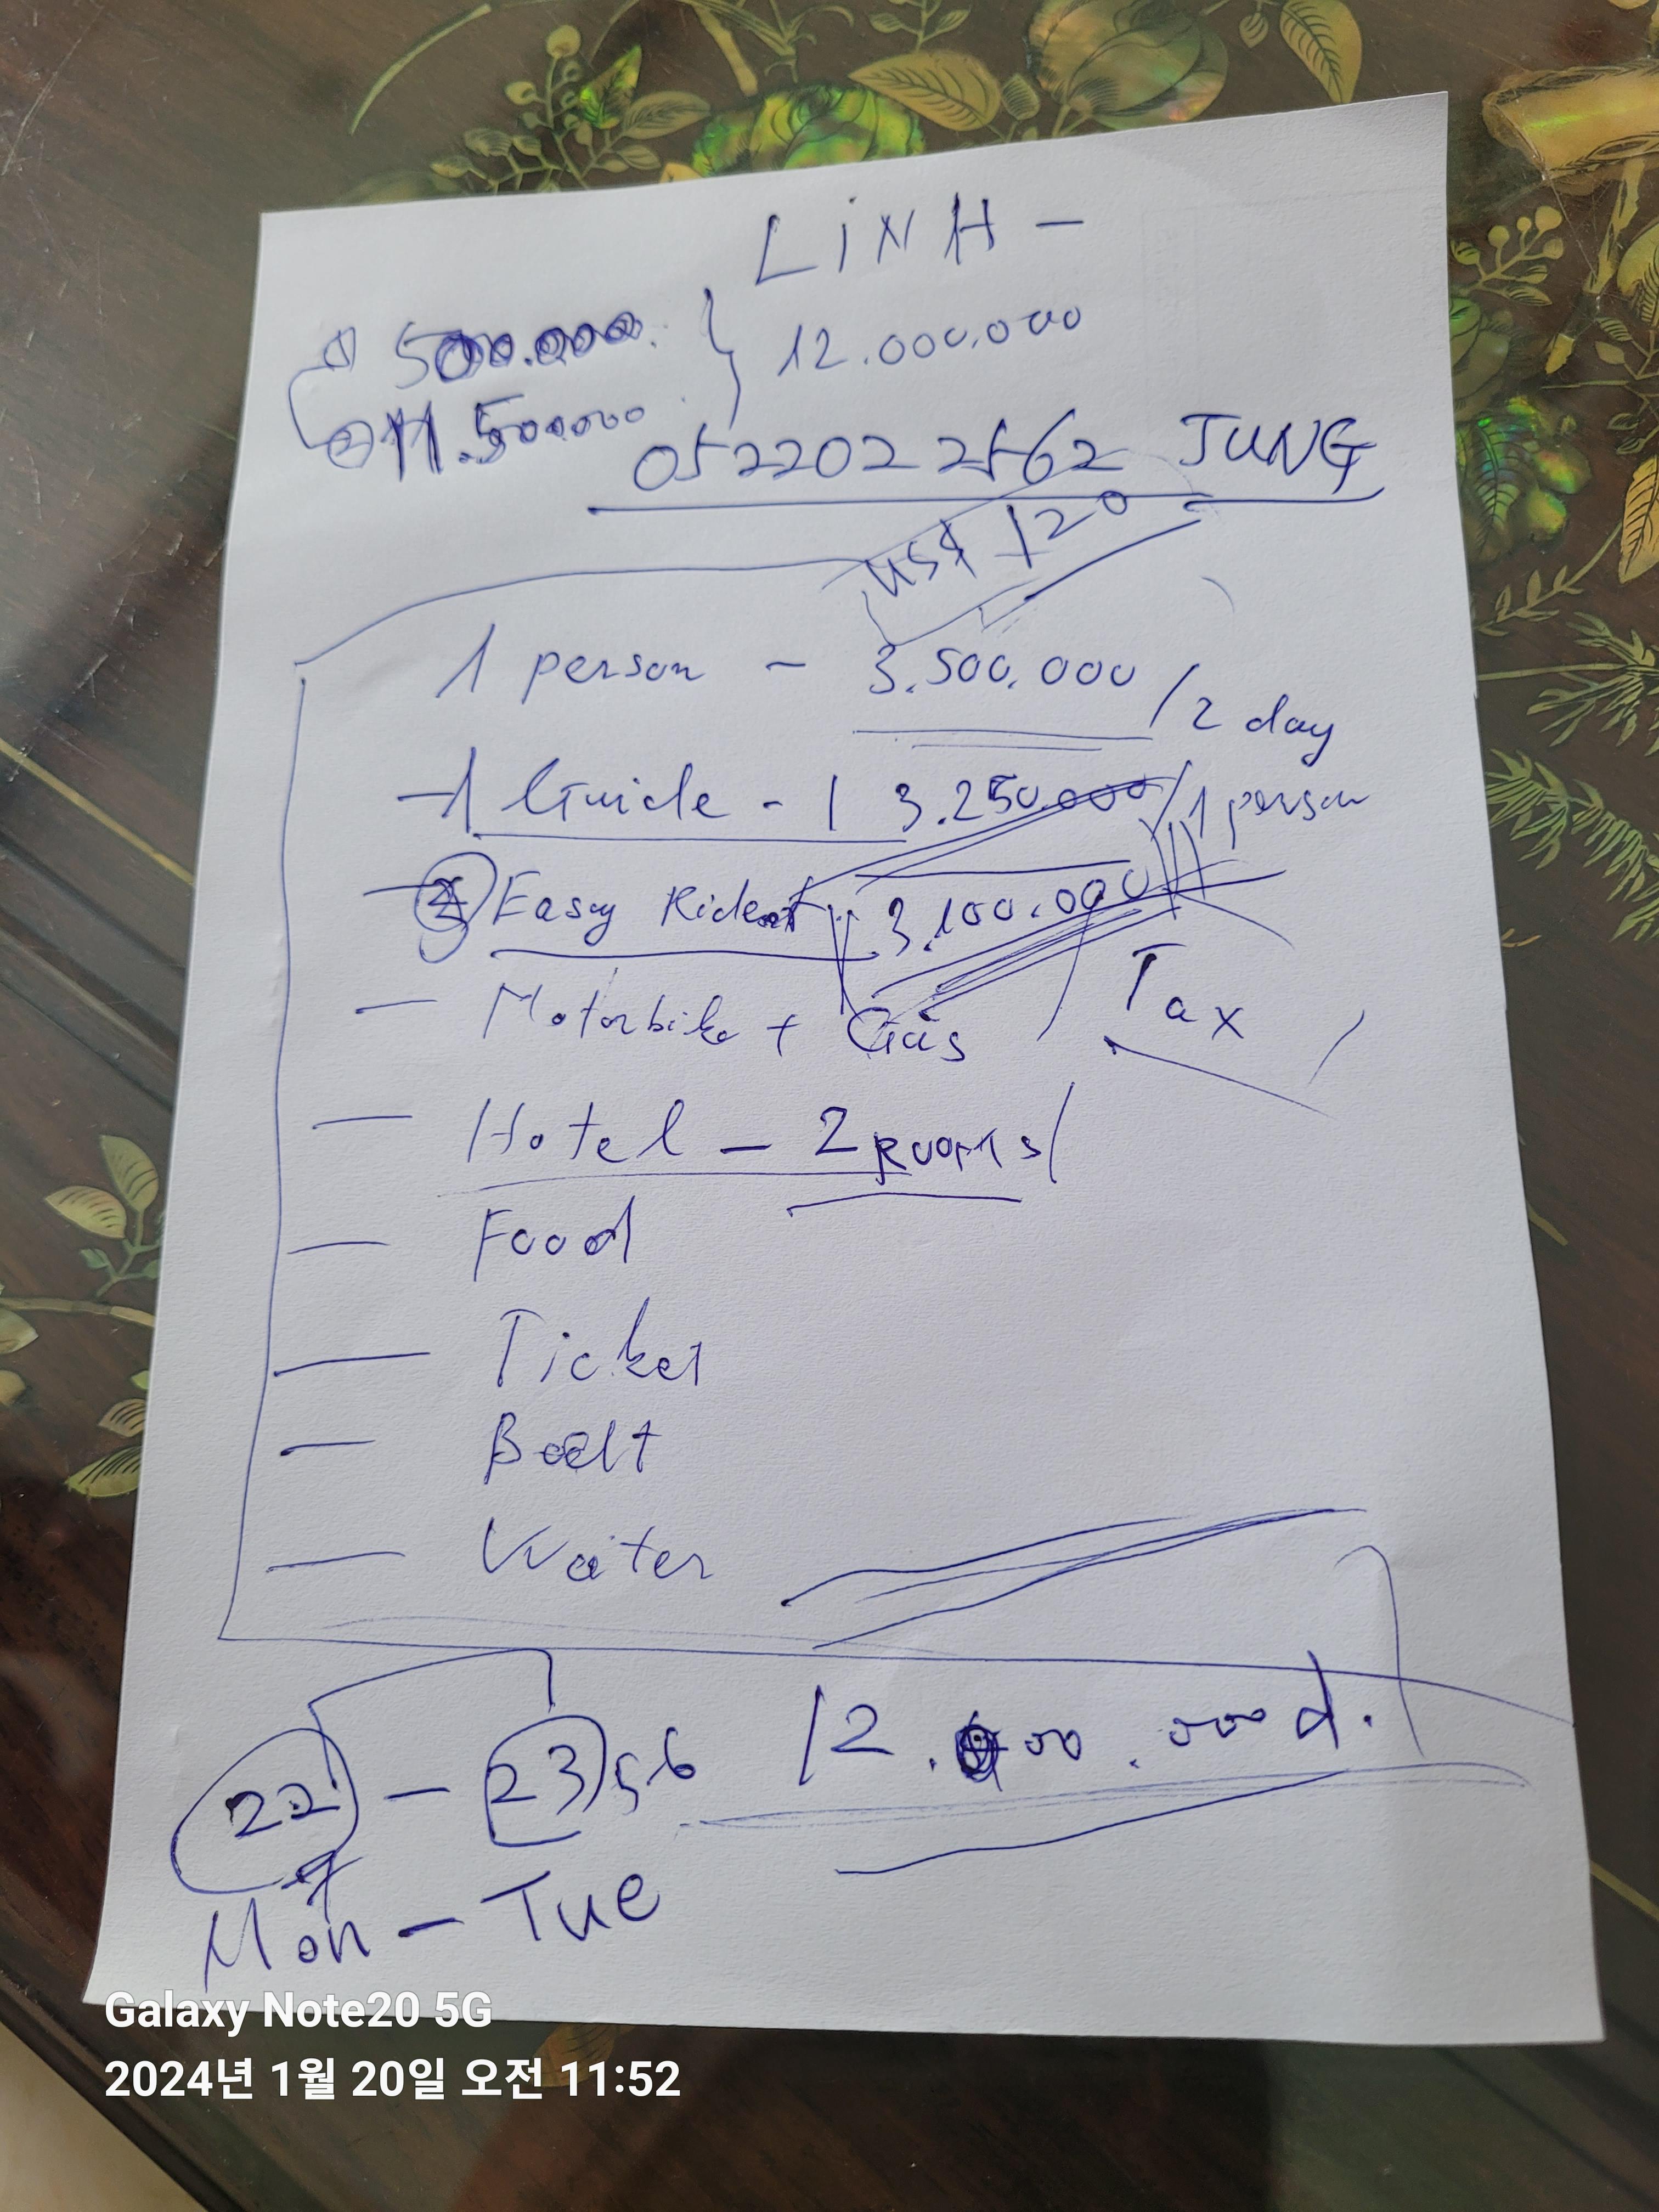 LiNH -
① 500.000. } 12.000.000
② 11.500000
0522022562 JUNG
US$ 120
1 person - 3.500.000 / 2 day
- 1 Guide - 1 3.250.000 / 1 person
Easy Rider 3.100.000
Tax
- Motorbike + Gas
- Hotel - 2 Rooms /
- Food
- Ticket
- Water
22 - 23 56 12.000.000 d.
Mon - Tue
Galaxy Note20 5G
2024년 1월 20일 오전 11:52